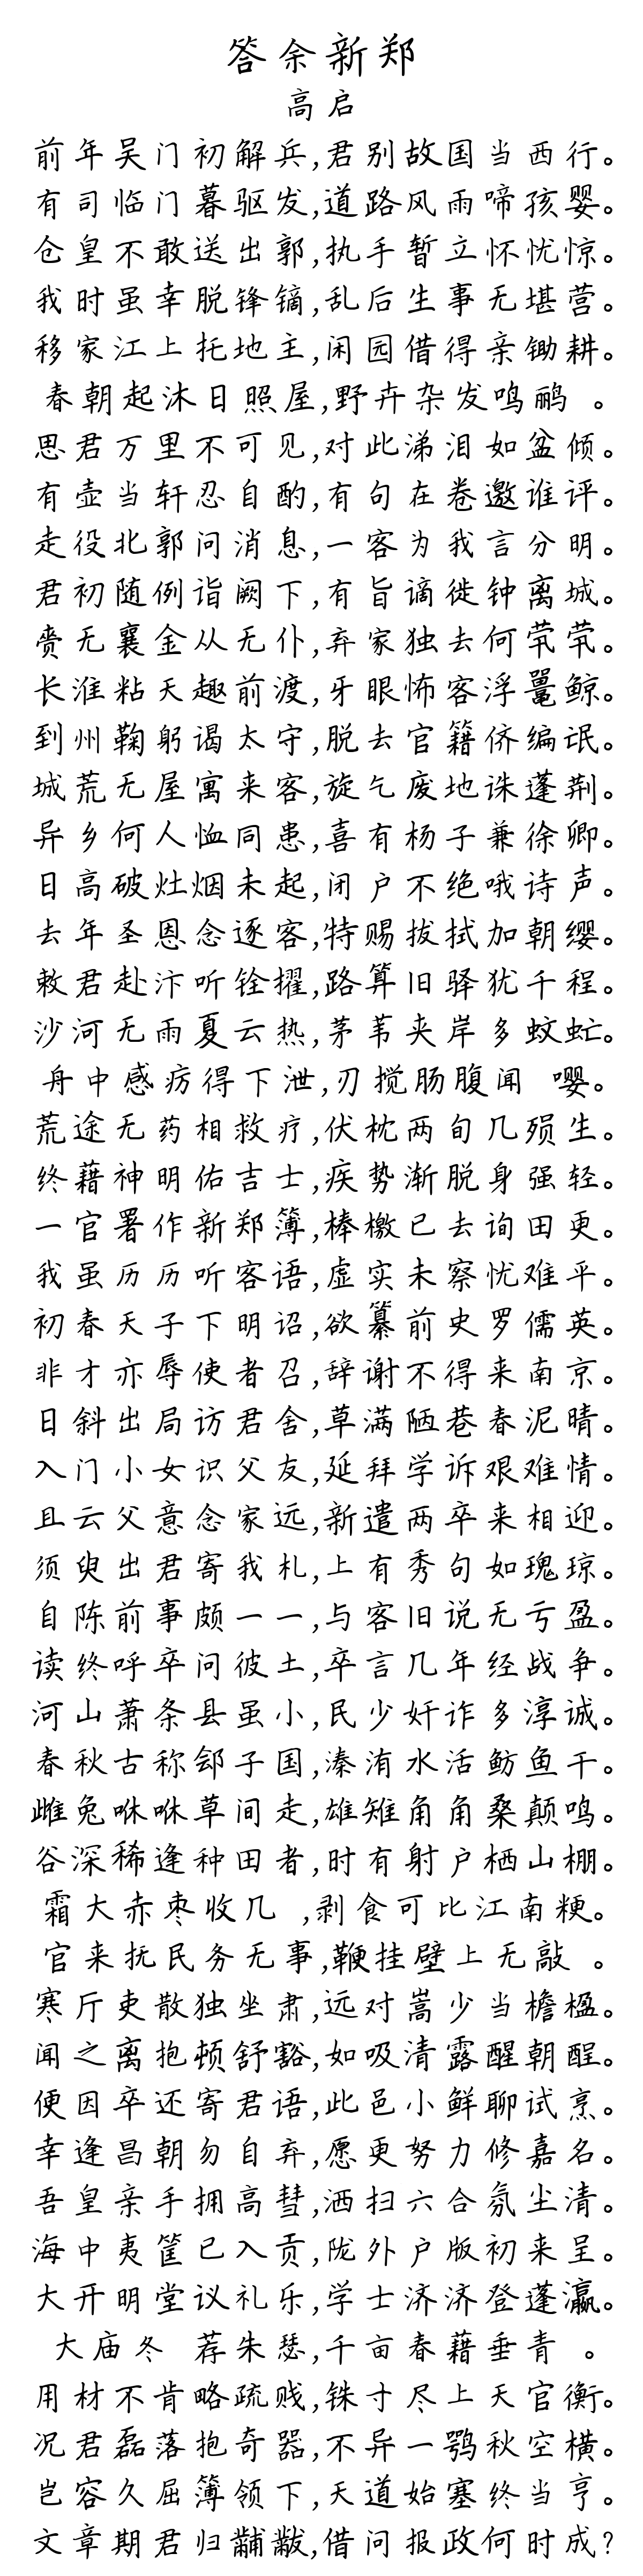 答余新郑
高启
前年吴门初解兵,君别故国当西行。
有司临门暮驱发,道路风雨啼孩婴。
仓皇不敢送出郭,执手暂立怀忧惊。
我时虽幸脱锋镝,乱后生事无堪营。
移家江上托地主,闲园借得亲锄耕。
春朝起沐日照屋,野卉杂发鸣鹂 。
思君万里不可见,对此涕泪如盆倾。
有壶当轩忍自酌,有句在卷邀谁评。
走役北郭问消息,一客为我言分明。
君初随例诣阙下,有旨谪徙钟离城。
赍无襄金从无仆,弃家独去何茕茕。
长淮粘天趣前渡,牙眼怖客浮鼍鲸。
到州鞠躬谒太守,脱去官籍侪编氓。
城荒无屋寓来客,旋乞废地诛蓬荆。
异乡何人恤同患,喜有杨子兼徐卿。
日高破灶烟未起,闭户不绝哦诗声。
去年圣恩念逐客,特赐拔拭加朝缨。
敕君赴汴听铨擢,路算旧驿犹千程。
沙河无雨夏云热,茅苇夹岸多蚊虻。
舟中感疠得下泄,刃搅肠腹闻 嘤。
荒途无药相救疗,伏枕两旬几殒生。
终藉神明佑吉士,疾势渐脱身强轻。
一官署作新郑簿,棒檄已去询田更。
我虽历历听客语,虚实未察忧难平。
初春天子下明诏,欲纂前史罗儒英。
非才亦辱使者召,辞谢不得来南京。
日斜出局访君舍,草满陋巷春泥晴。
入门小女识父友,延拜学诉艰难情。
且云父意念家远,新遣两卒来相迎。
须臾出君寄我札,上有秀句如瑰琼。
自陈前事颇一一,与客旧说无亏盈。
读终呼卒问彼土,卒言几年经战争。
河山萧条县虽小,民少奸诈多淳诚。
春秋古称郐子国,溱洧水活鲂鱼干。
雌兔咻咻草间走,雄雉角角桑颠鸣。
谷深稀逢种田者,时有射户栖山棚。
霜大赤枣收几 ,剥食可比江南粳。
官来抚民务无事,鞭挂壁上无敲 。
寒厅吏散独坐肃,远对嵩少当檐楹。
闻之离抱顿舒豁,如吸清露醒朝酲。
便因卒还寄君语,此邑小鲜聊试烹。
幸逢昌朝勿自弃,愿更努力修嘉名。
吾皇亲手拥高彗,洒扫六合氛尘清。
海中夷筐已入贡,陇外户版初来呈。
大开明堂议礼乐,学士济济登蓬瀛。
大庙冬 荐朱瑟,千亩春藉垂青 。
用材不肯略疏贱,铢寸尽上天官衡。
况君磊落抱奇器,不异一鹗秋空横。
岂容久屈簿领下,天道始塞终当亨。
文章期君归黼黻,借问报政何时成?